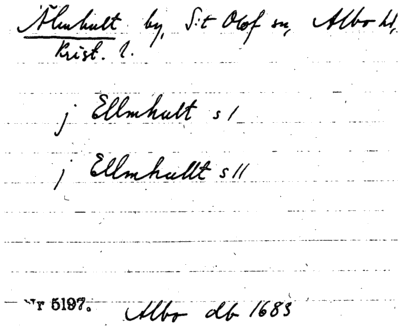 Älmhult by, S:t Olof sn, Albo hd,
Krist. l.
j Ellmhult s 1
j Ellmhullt s 11
Nr 5197.
Albo db 1683